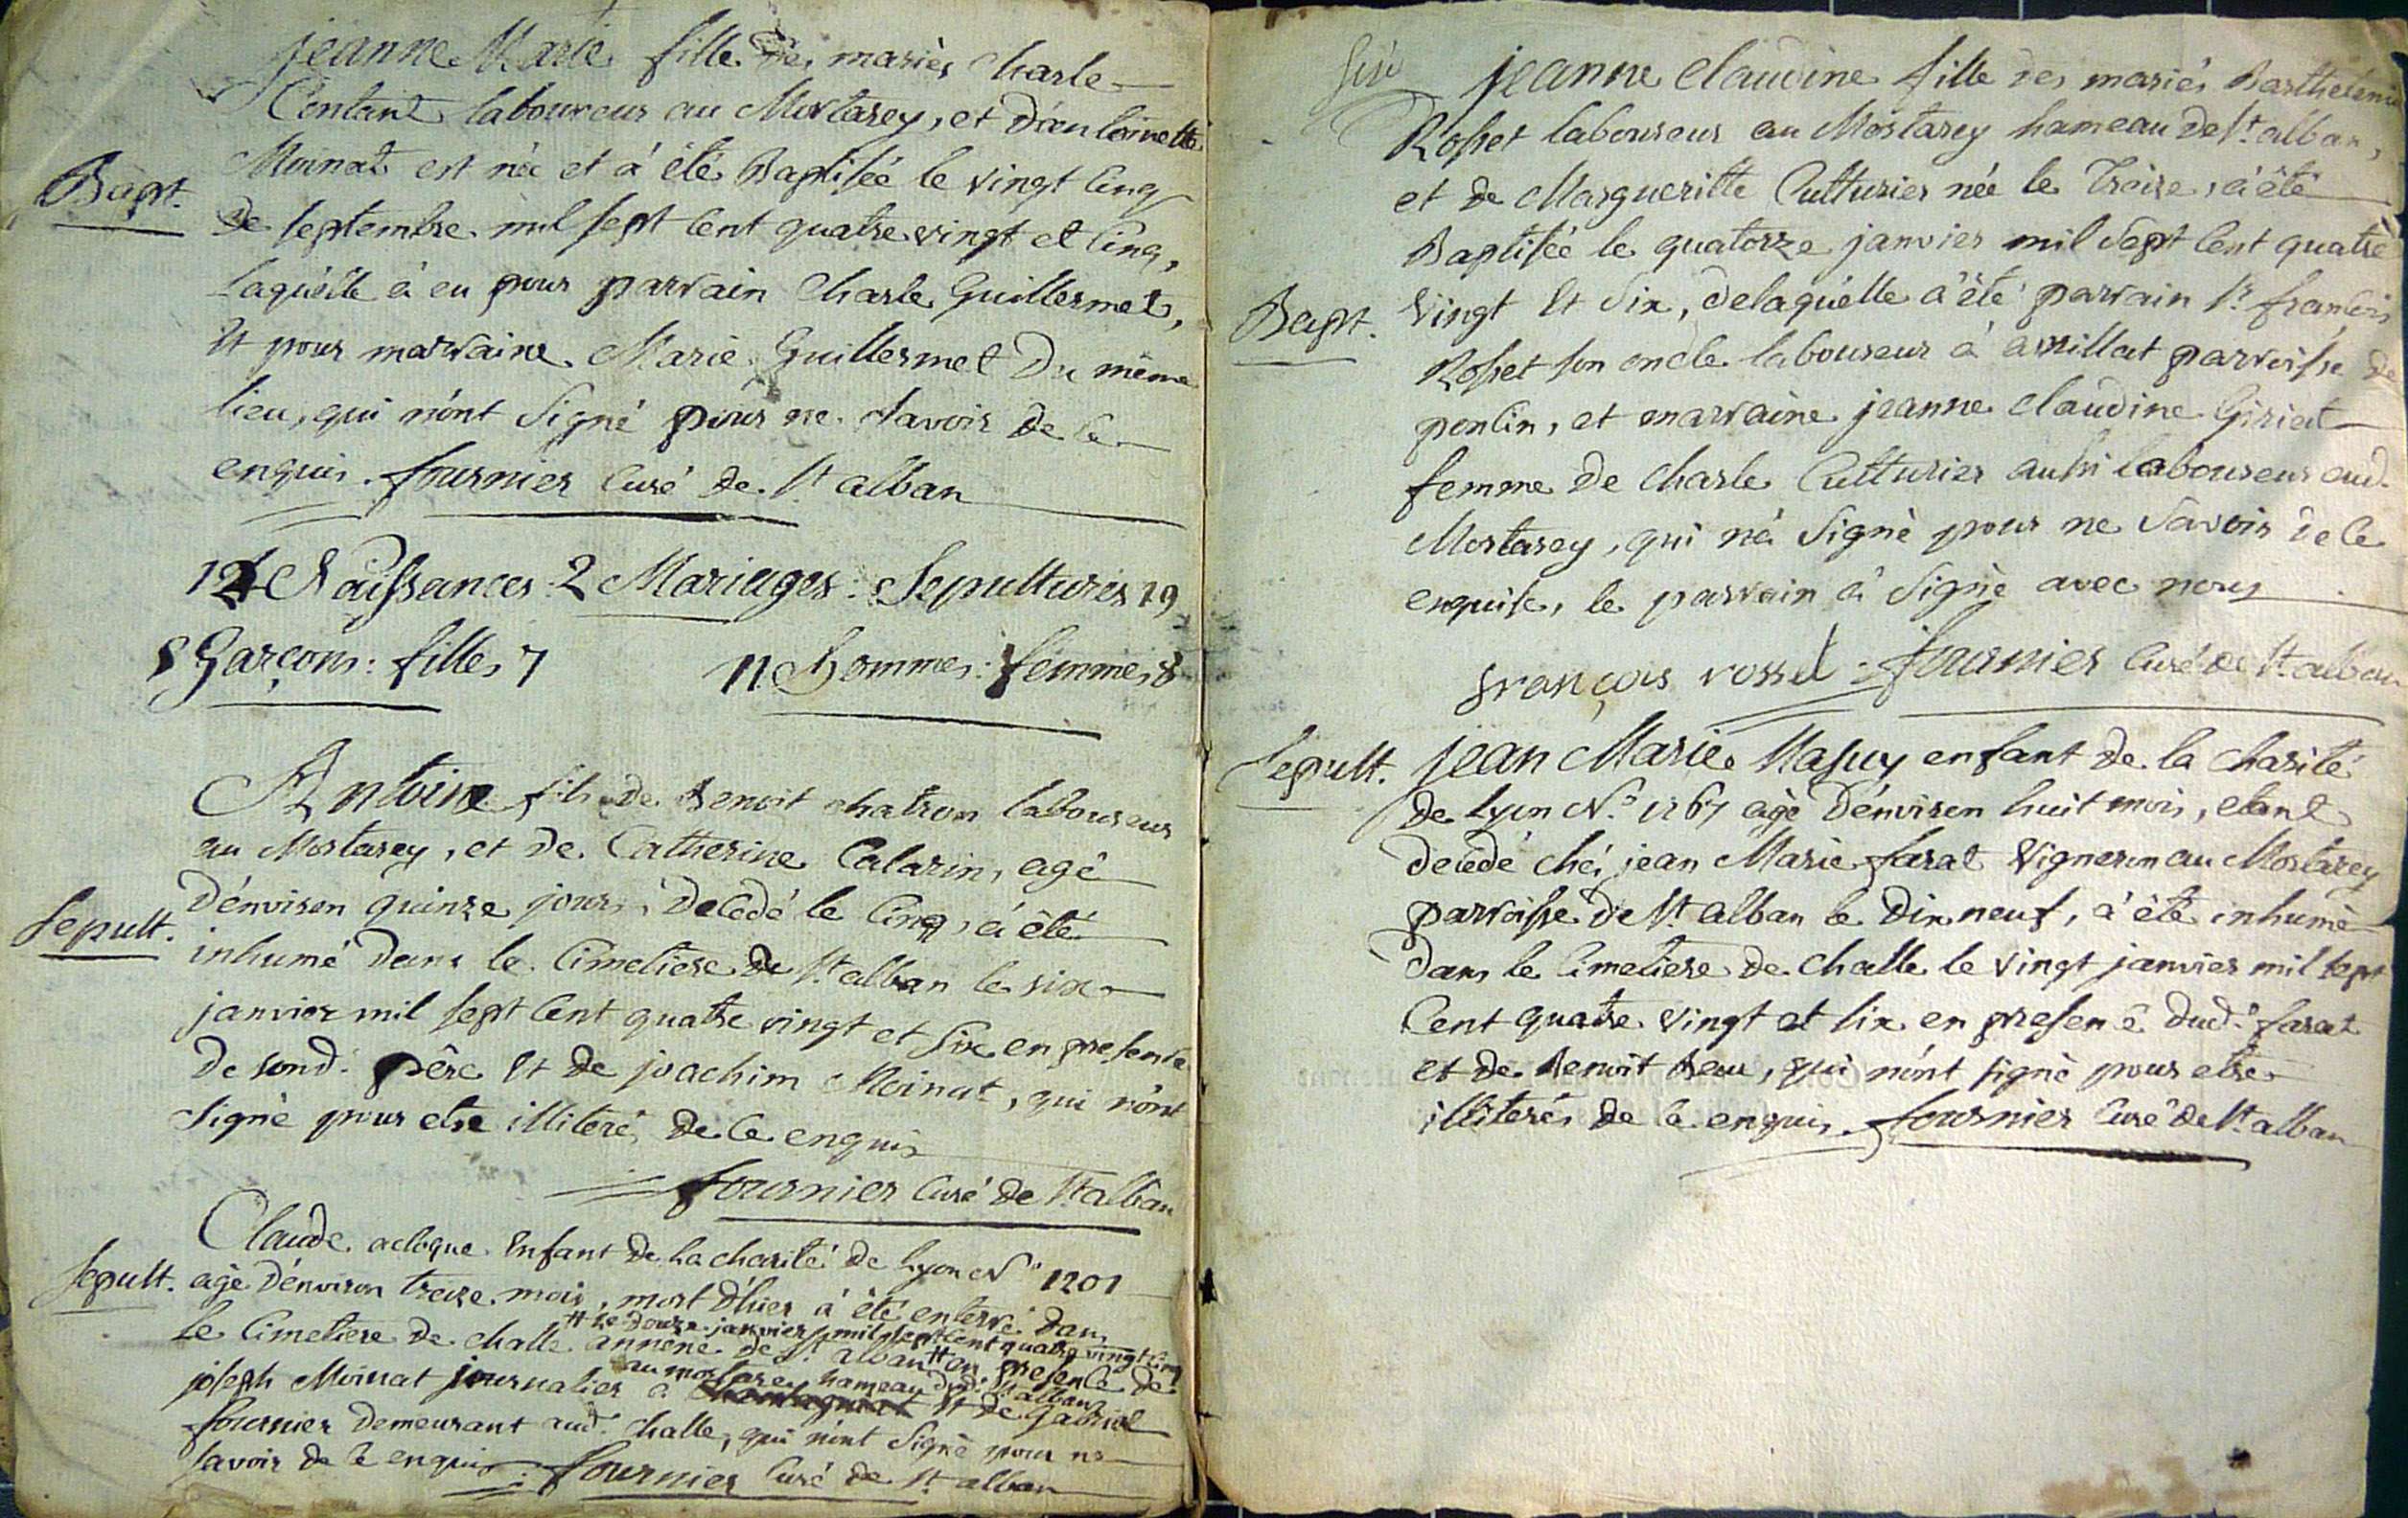 jeanne Marie fille des mariés Charle
Contant laboureur au Mortarey, et d'antoinette
Moinat est née et à été Baptisée le vingt Cinq
Bapt.
De septembre mil sept Cent quatre vingt et Cinq,
Laquelle à eu pour parrain Charle Guillermet,
Et pour marraine Marie Guillermet Du même
lieu, qui n'ont Signé pour ne Savoir de ce
enquis. fournier Curé de St alban
12 Naissances 2 Mariages : Sepultures 19
5 Garçons : filles 7 11 hommes : femmes 8
Antoine fils de Benoit chatron laboureur
au Mortarey, et de Catherine Calarin, agé
D'environ quinze jours, Decedé le Cinq, à été
Sepult.
inhumé Dans le Cimetiere de St alban le six
janvier mil sept Cent quatre vingt et Six en presence
De sond. Père Et de joachim Moinat, qui n'ont
Signé pour etre illiteré de Ce enquis
fournier Curé de St alban
Claude acloque Enfant de la charité de Lyon N° 1201
Sepult. agé D'environ treize mois, mort d'hier à été enterré dans
# Le douze janvier mil sept cent quatre vingt cinq
Le Cimetiere de challe annexe de St alban # en presence de
au mortarey hameau dud. St alban
joseph Moinat journalier à Et de Gabriel
fournier demeurant aud. Challe, qui n'ont Signé pour ne
Savoir de Ce enquis : fournier Curé de St alban
Six
jeanne Claudine fille des mariés Barthelemi
Rosset laboureur au Mortarey hameau de St. alban,
et de Margueritte Cutturier née le Treize, à été
Baptisée le quatorze janvier mil Sept Cent quatre
Bapt.
Vingt Et Six, de laquelle à été parrain Sr. francois
Rosset son oncle laboureur à avrillat parroisse de
poncin, et marraine jeanne Claudine Giriat
femme de Charle Cutturier aussi laboureur aud.
Mortarey, qui n'à Signé pour ne Savoir de ce
enquise, le parrain à Signé avec nous
françois rosset fournier Curé de St. alban
Sepult. jean Marie Masuy enfant de la charité
de Lyon N° 1267 agé D'environ huit mois, etant
decedé ché jean Marie farat Vigneron au Mortarey
parroisse de St. alban le Dix neuf, à été inhumé
Dans le Cimetiere de Challe le vingt janvier mil sept
Cent quatre vingt et six en presence dud. farat
et de Benoit Beau, qui n'ont signé pour etre
illiterés de ce enquis. fournier Curé de St. alban